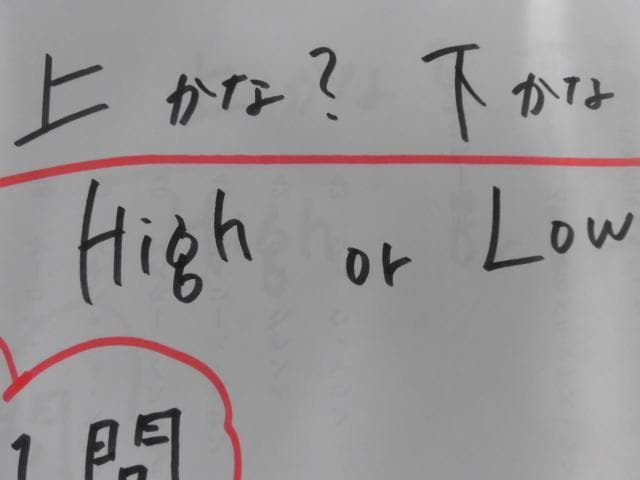 上かな？ 下かな
High or Low
1問